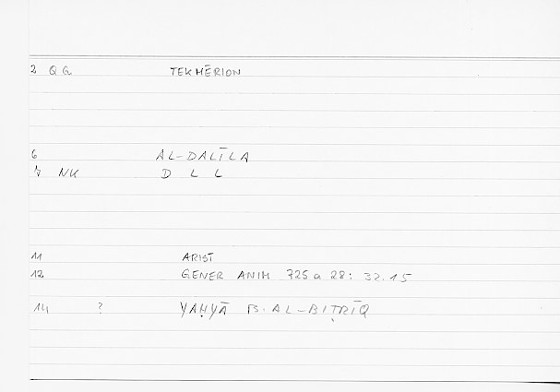 2 QG TEKMĒRION
6 AL-DALĪLA
7 NK D L L
11 ARIST
12 GENER ANIM 725a28: 32.15
14 ? YAḤYĀ B. AL-BIṬRĪQ